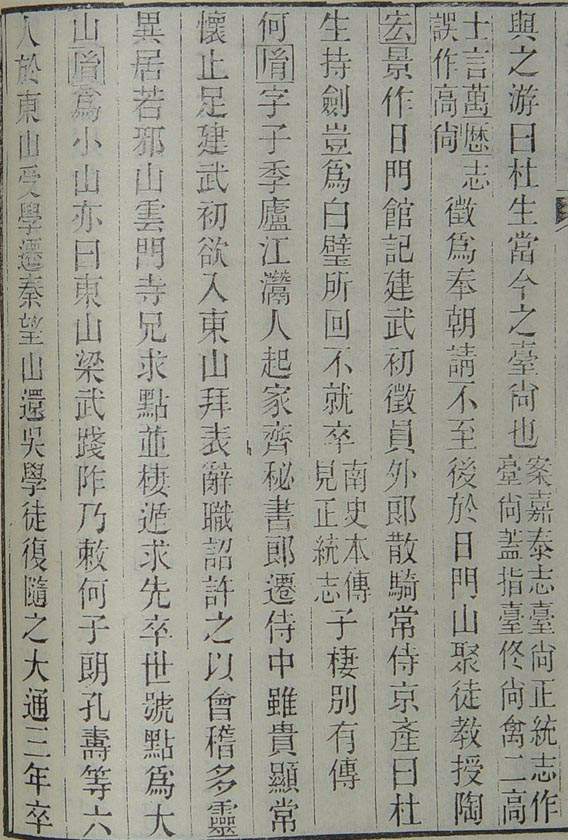 與之游曰杜生當今之臺尙也案嘉泰志臺尙正統志作臺尙蓋指臺佟尙禽二高
士言萬歷志誤作高尙徵爲奉朝請不至後於日門山聚徒教授陶
宏景作日門館記建武初徵員外郎散騎常侍京產曰杜
生持劍豈爲白璧所回不就卒南史本傳見正統志子棲別有傳
何𦙍字子季廬江灊人起家齊秘書郎遷侍中雖貴顯常
懷止足建武初欲入東山拜表辭職詔許之以會稽多靈
異居若邪山雲門寺兄求點並棲遁求先卒世號點爲大
山𦙍爲小山亦曰東山梁武踐阼乃敕何子朗孔壽等六
人於東山受學遷秦望山還吳學徒復隨之大通三年卒